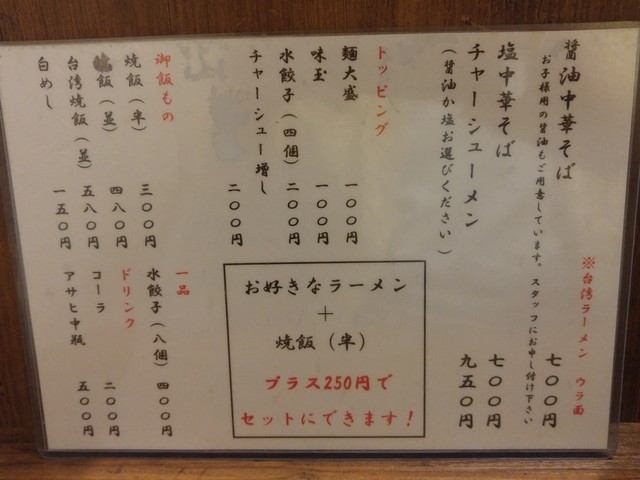 ※台湾ラーメン ウラ面
醤油中華そば 七〇〇円
お子様用の醤油もご用意しています。スタッフにお申し付け下さい
塩中華そば 七〇〇円
チャーシューメン 九五〇円
(醤油か塩お選びください)
トッピング
麺大盛 一〇〇円
味玉 一〇〇円
水餃子(四個) 二〇〇円
チャーシュー増し 二〇〇円
お好きなラーメン
+
焼飯(半)
プラス250円で
セットにできます!
御飯もの
焼飯(半) 三〇〇円
焼飯(並) 四八〇円
台湾焼飯(並) 五八〇円
白めし 一五〇円
一品
水餃子(八個) 四〇〇円
ドリンク
コーラ 二〇〇円
アサヒ中瓶 五〇〇円